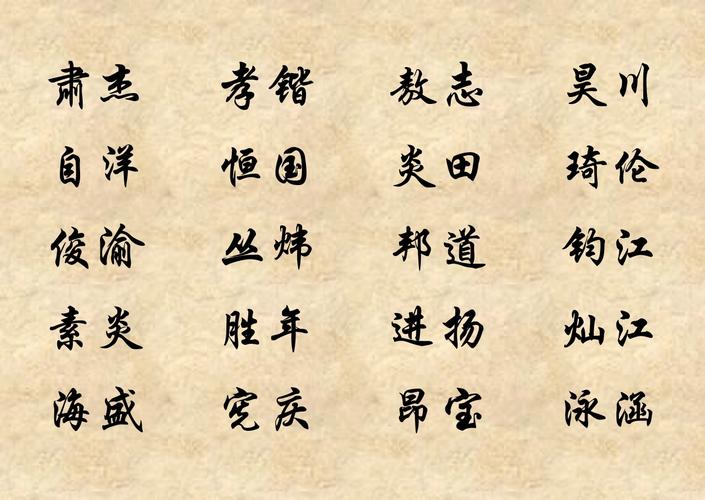 肃杰 孝锴 敖志 昊川
自洋 恒国 炎田 琦伦
俊渝 丛炜 邦道 钧江
素炎 胜年 进扬 灿江
海盛 宪庆 昂宝 泳涵